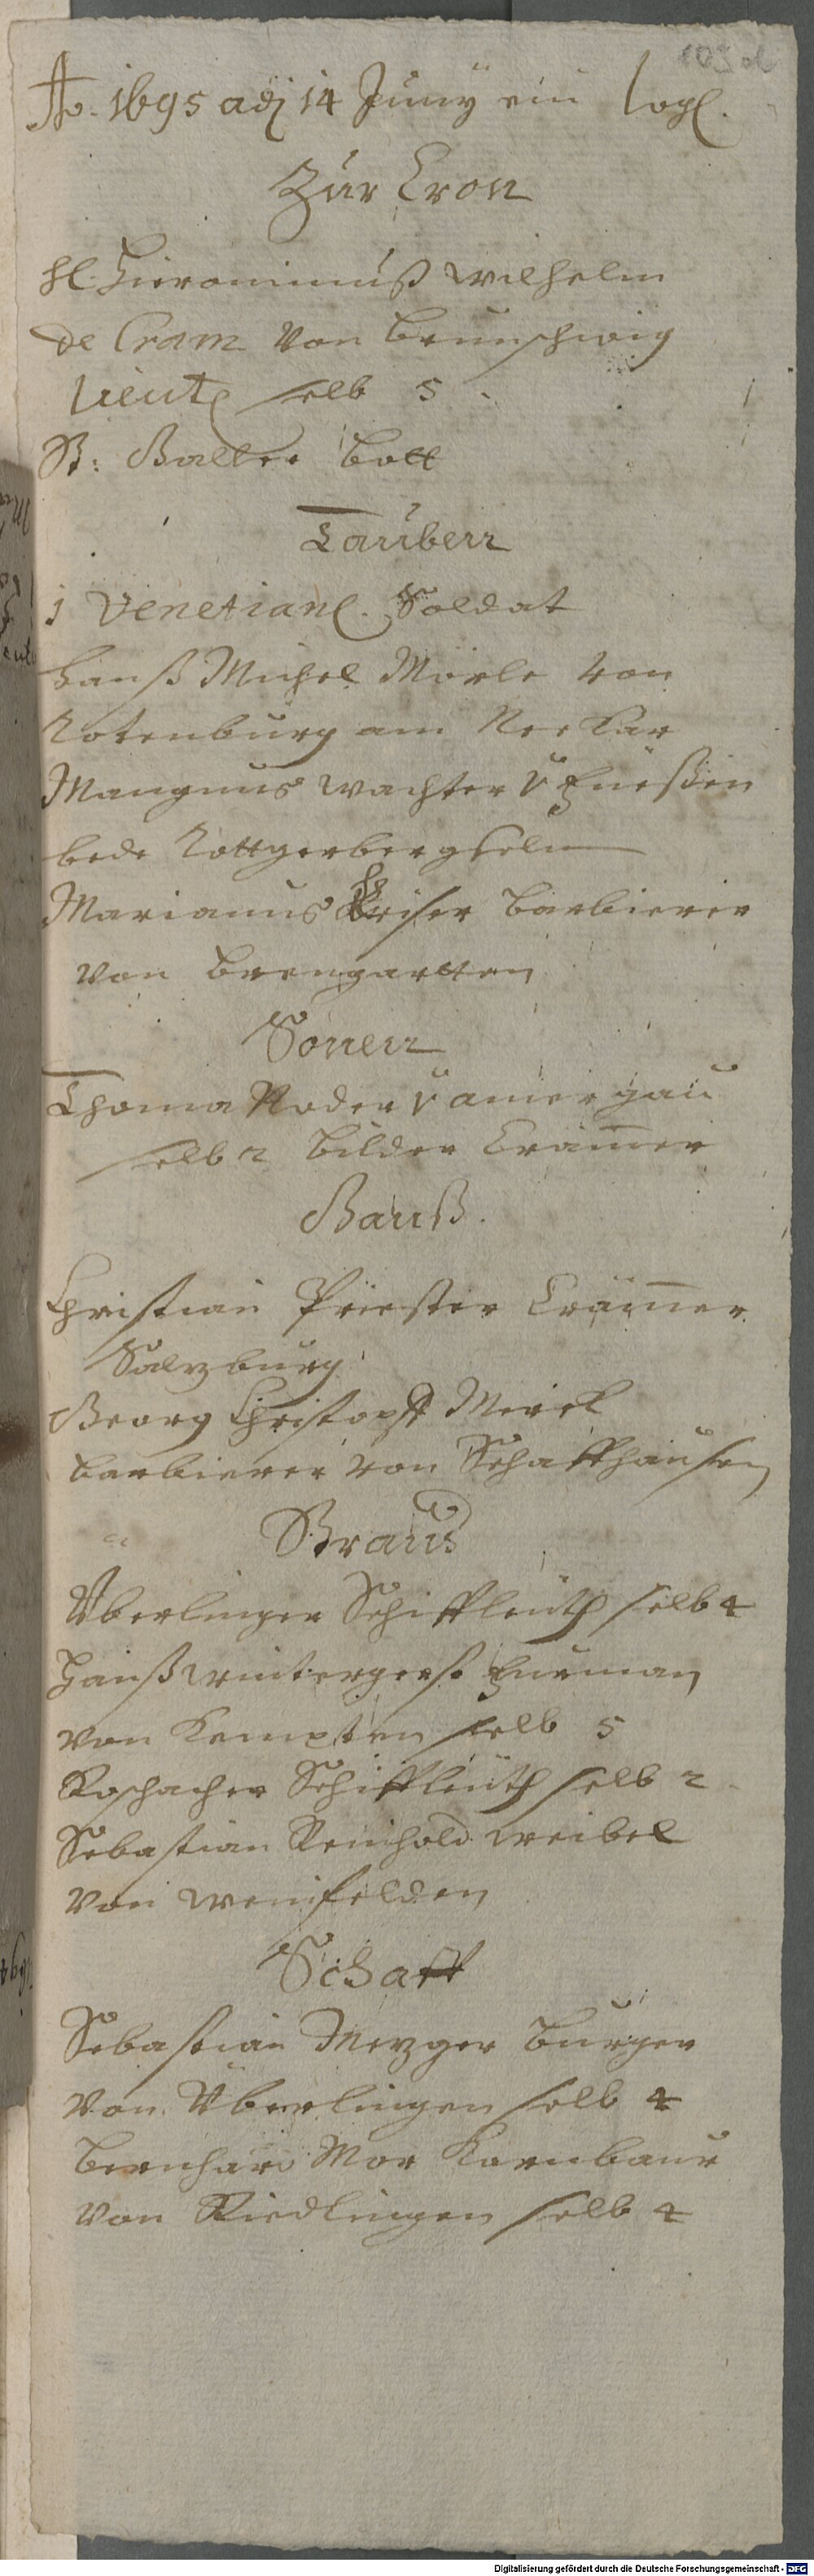 Ao. 1695 adj 14 Juny ein logl.
Zur Cron
Hl. Hieronimuß wilhelm
de Cram von braunschwig
lieut selb 5
St: Galler bott
Tauben
1 Venetianl. Soldat
hanß Michel Mörle von
Rotenburg am Neckar
Mangnus wachter v Füeßen
bede Rottgerber gseln
Marianus barbierer
von bremgartten
Sonen
Thoma Noder v amergau
selb 2 bilder Cramer
Gauß.
Christian Priester Cramer
Salzburg
Georg Christoph Merck
barbierer von Schaffhausen
Straus
Überlinger Schiffleuth selb 4
hanß wintergerst Fuerman
von Kempten selb 5
Roschacher Schiffleuth selb 2
Sebastian Reinhold weibel
von weinfelden
Schaff
Sebastian Mezger burger
von Überlingen selb 4
bernhard Mor Kornbaur
von Riedlingen selb 4
Digitalisierung gefördert durch die Deutsche Forschungsgemeinschaft - DFG